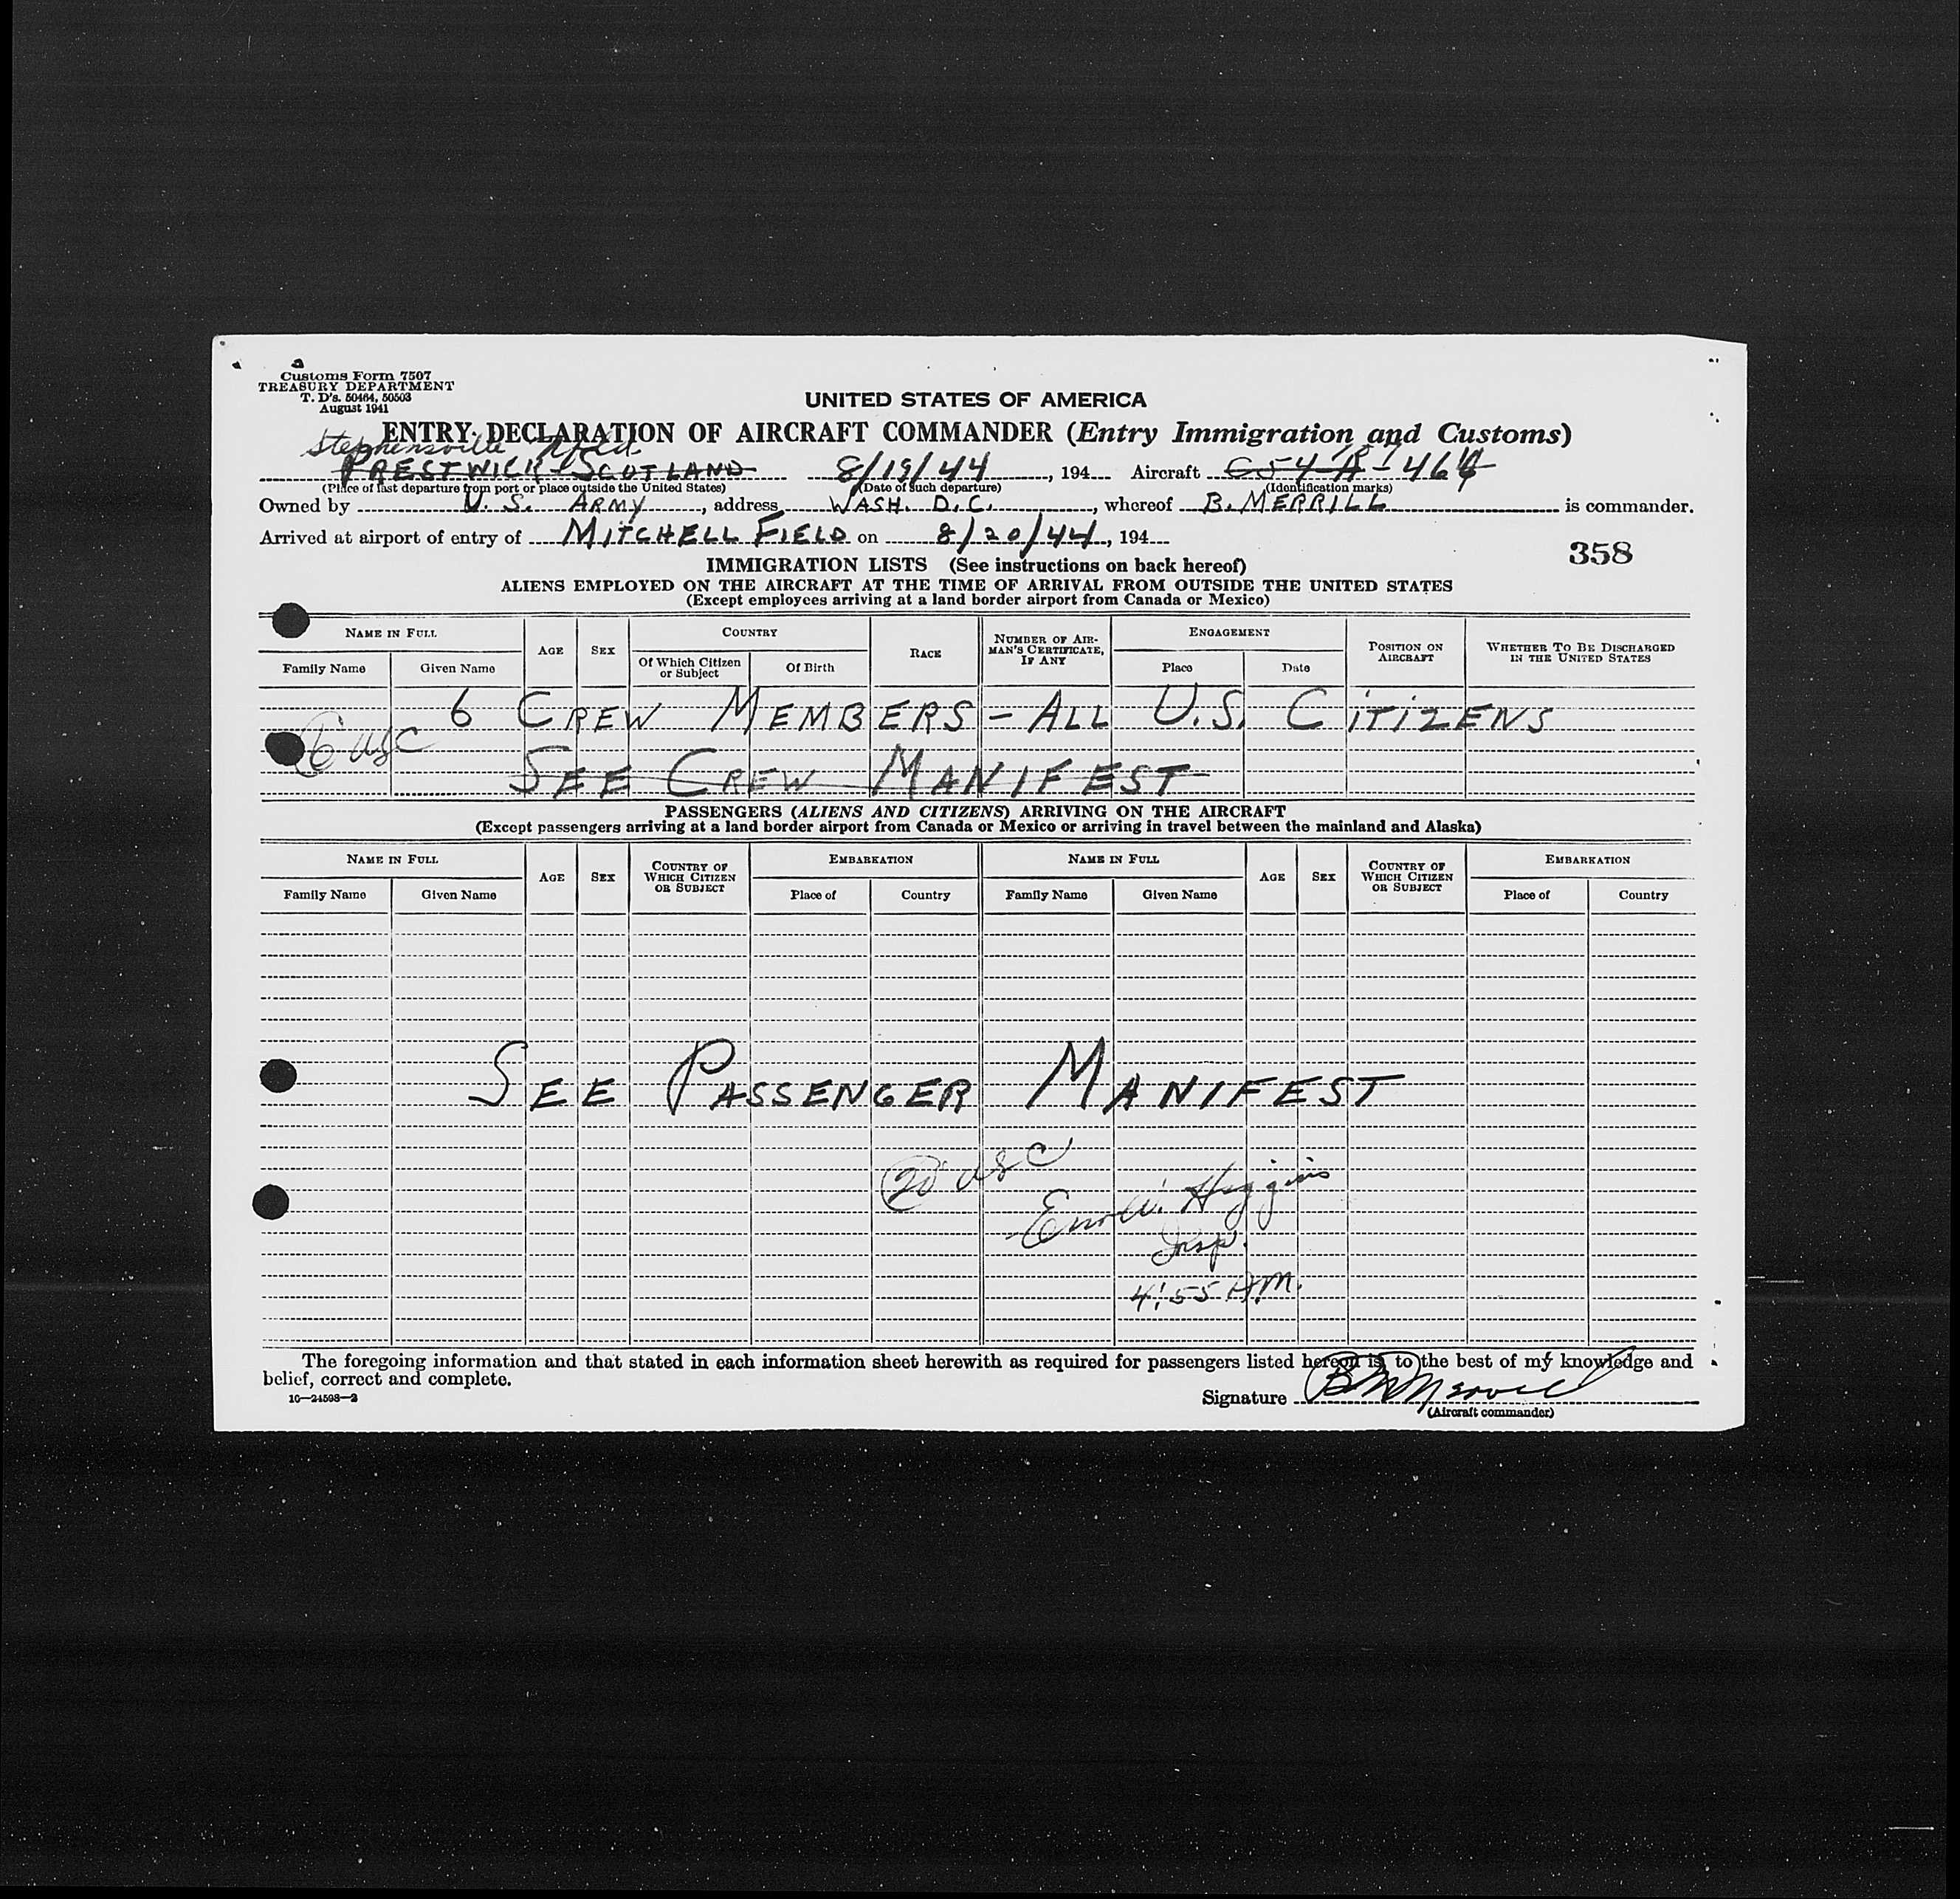 Customs Form 7507
TREASURY DEPARTMENT
T. D's. 50464, 50503
August 1941
UNITED STATES OF AMERICA
ENTRY DECLARATION OF AIRCRAFT COMMANDER (Entry Immigration and Customs)
Stephensville Nfld.
PRESTWICK - SCOTLAND 8/19/44, 194 Aircraft C54-A-464
(Place of last departure from port or place outside the United States) (Date of such departure) (Identification marks)
Owned by U. S. ARMY, address WASH. D.C., whereof B. MERRILL is commander.
Arrived at airport of entry of MITCHELL FIELD on 8/20/44, 194
358
IMMIGRATION LISTS (See instructions on back hereof)
ALIENS EMPLOYED ON THE AIRCRAFT AT THE TIME OF ARRIVAL FROM OUTSIDE THE UNITED STATES
(Except employees arriving at a land border airport from Canada or Mexico)
NAME IN FULL AGE SEX COUNTRY RACE NUMBER OF AIRMAN'S CERTIFICATE, IF ANY ENGAGEMENT POSITION ON AIRCRAFT WHETHER TO BE DISCHARGED IN THE UNITED STATES
Family Name Given Name Of Which Citizen or Subject Of Birth Place Date
6 CREW MEMBERS - ALL U.S. CITIZENS
6 USC
SEE CREW MANIFEST
PASSENGERS (ALIENS AND CITIZENS) ARRIVING ON THE AIRCRAFT
(Except passengers arriving at a land border airport from Canada or Mexico or arriving in travel between the mainland and Alaska)
NAME IN FULL AGE SEX COUNTRY OF WHICH CITIZEN OR SUBJECT EMBARKATION NAME IN FULL AGE SEX COUNTRY OF WHICH CITIZEN OR SUBJECT EMBARKATION
Family Name Given Name Place of Country Family Name Given Name Place of Country
SEE PASSENGER MANIFEST
20 USC
Higgins
Insp.
4:55 A.M.
The foregoing information and that stated in each information sheet herewith as required for passengers listed hereon is, to the best of my knowledge and
belief, correct and complete.
16—24598-2
Signature B M Merrill
(Aircraft commander)